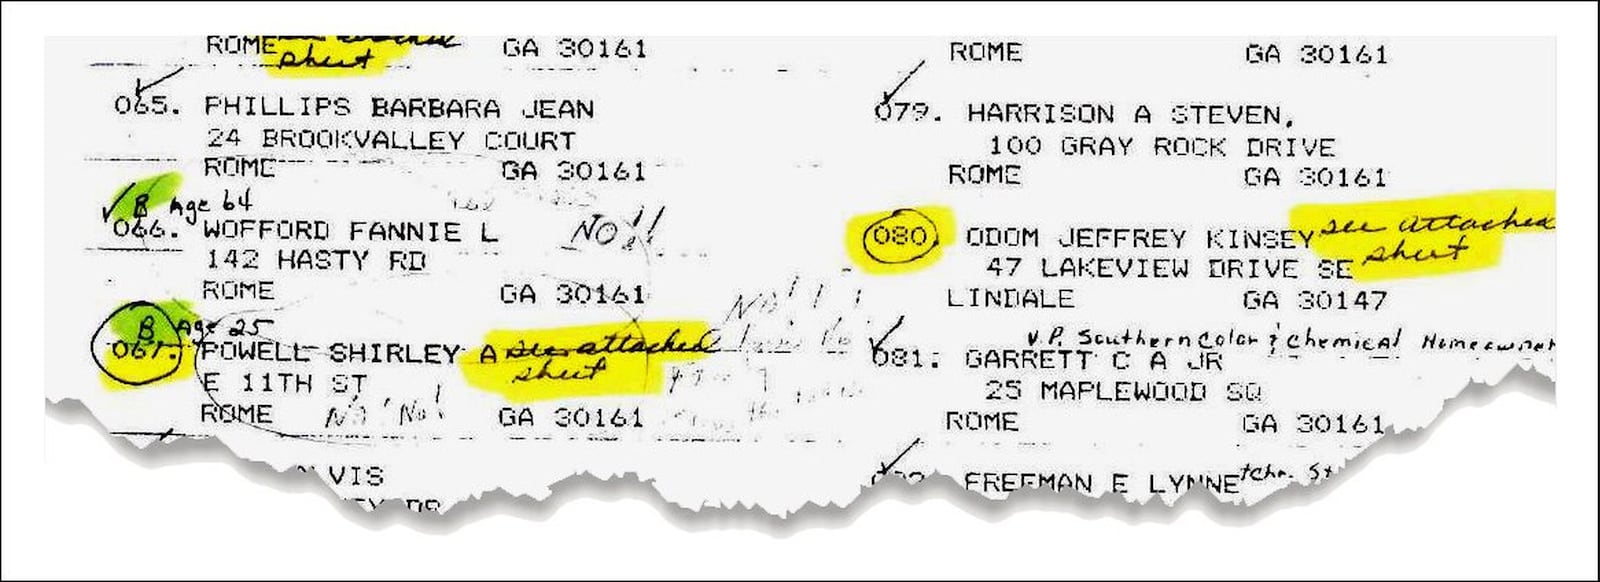 ROME sheet GA 30161
065. PHILLIPS BARBARA JEAN
24 BROOKVALLEY COURT
ROME GA 30161
B Age 64
066. WOFFORD FANNIE L NO!!
142 HASTY RD
ROME GA 30161
B Age 25
067. POWELL SHIRLEY A see attached
sheet
E 11TH ST
ROME No! No! GA 30161
VIS
ROME GA 30161
079. HARRISON A STEVEN,
100 GRAY ROCK DRIVE
ROME GA 30161
080. ODOM JEFFREY KINSEY see attached
sheet
47 LAKEVIEW DRIVE SE
LINDALE GA 30147
V.P. Southern Color & Chemical Homeowner
081. GARRETT C A JR
25 MAPLEWOOD SQ
ROME GA 30161
FREEMAN E LYNNE tchr.